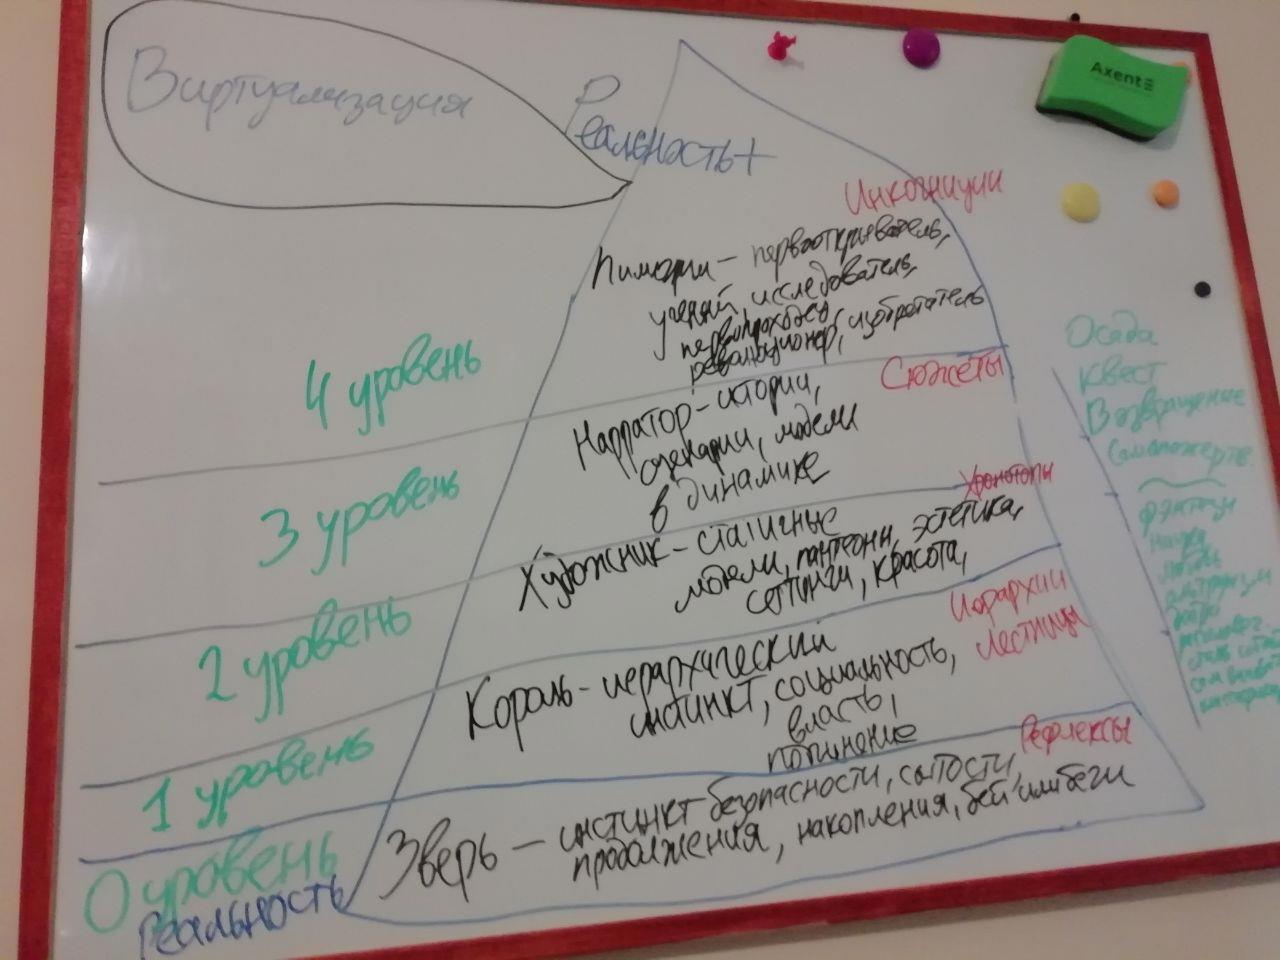 Виртуализация
Реальность+
Axent
Инкогниции
первооткрыватель,
учёный, исследователь,
первопроходец,
революционер, изобретатель
4 уровень
Сюжеты
Нарратор - истории,
сценарии, модели
в динамике
3 уровень
Хронотопы
Художник - статичные
модели, пантеоны, эстетика,
сеттинги, красота,
2 уровень
Иерархии
Лестницы
Король - иерархический
инстинкт, социальность,
власть,
1 уровень
Рефлексы
Зверь - инстинкт безопасности, сытости,
продолжения, накопления, бей или беги
0 уровень
Реальность
Осада
Квест
Возвращение
Самопожертв.
фэнтези
наука
любовь